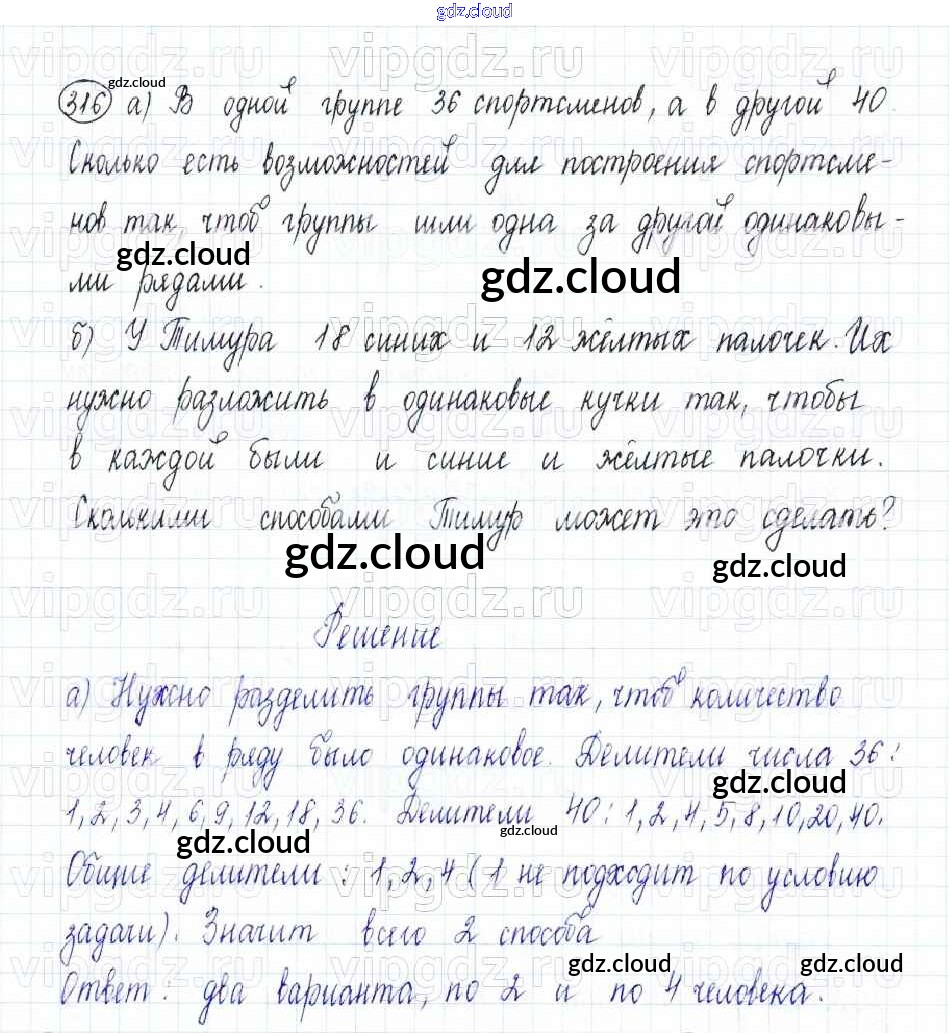 gdz.cloud
gdz.cloud
316 а) В одной группе 36 спортсменов, а в другой 40.
Сколько есть возможностей для построения спортсме-
нов так, чтоб группы шли одна за другой одинаковы-
gdz.cloud
gdz.cloud
ми рядами.
б) У Тимура 18 синих и 12 жёлтых палочек. Их
нужно разложить в одинаковые кучки так, чтобы
в каждой были и синие и жёлтые палочки.
Сколькими способами Тимур может это сделать?
gdz.cloud
gdz.cloud
Решение
а) Нужно разделить группы так, чтоб количество
человек в ряду было одинаковое. Делители числа 36:
gdz.cloud
1, 2, 3, 4, 6, 9, 12, 18, 36. Делители 40: 1, 2, 4, 5, 8, 10, 20, 40.
gdz.cloud
gdz.cloud
Общие делители: 1, 2, 4 (1 не подходит по условию
задачи). Значит всего 2 способа
gdz.cloud
gdz.cloud
Ответ: два варианта, по 2 и по 4 человека.
vipgdz.ru